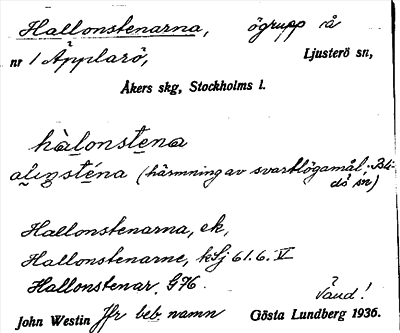 Hallonstenarna, ögrupp i å
nr 1 Äpplarö, Ljusterö sn,
Åkers skg, Stockholms l.
hàlonstena
(härmning av svartlögamål. Bli-
dö sn)
Hallonstenarna, ek,
Hallonstenarne, kSj 61.6.V
Hallonstenar. G76.
Vand!
John Westin Jfr beb. namn Gösta Lundberg 1936.